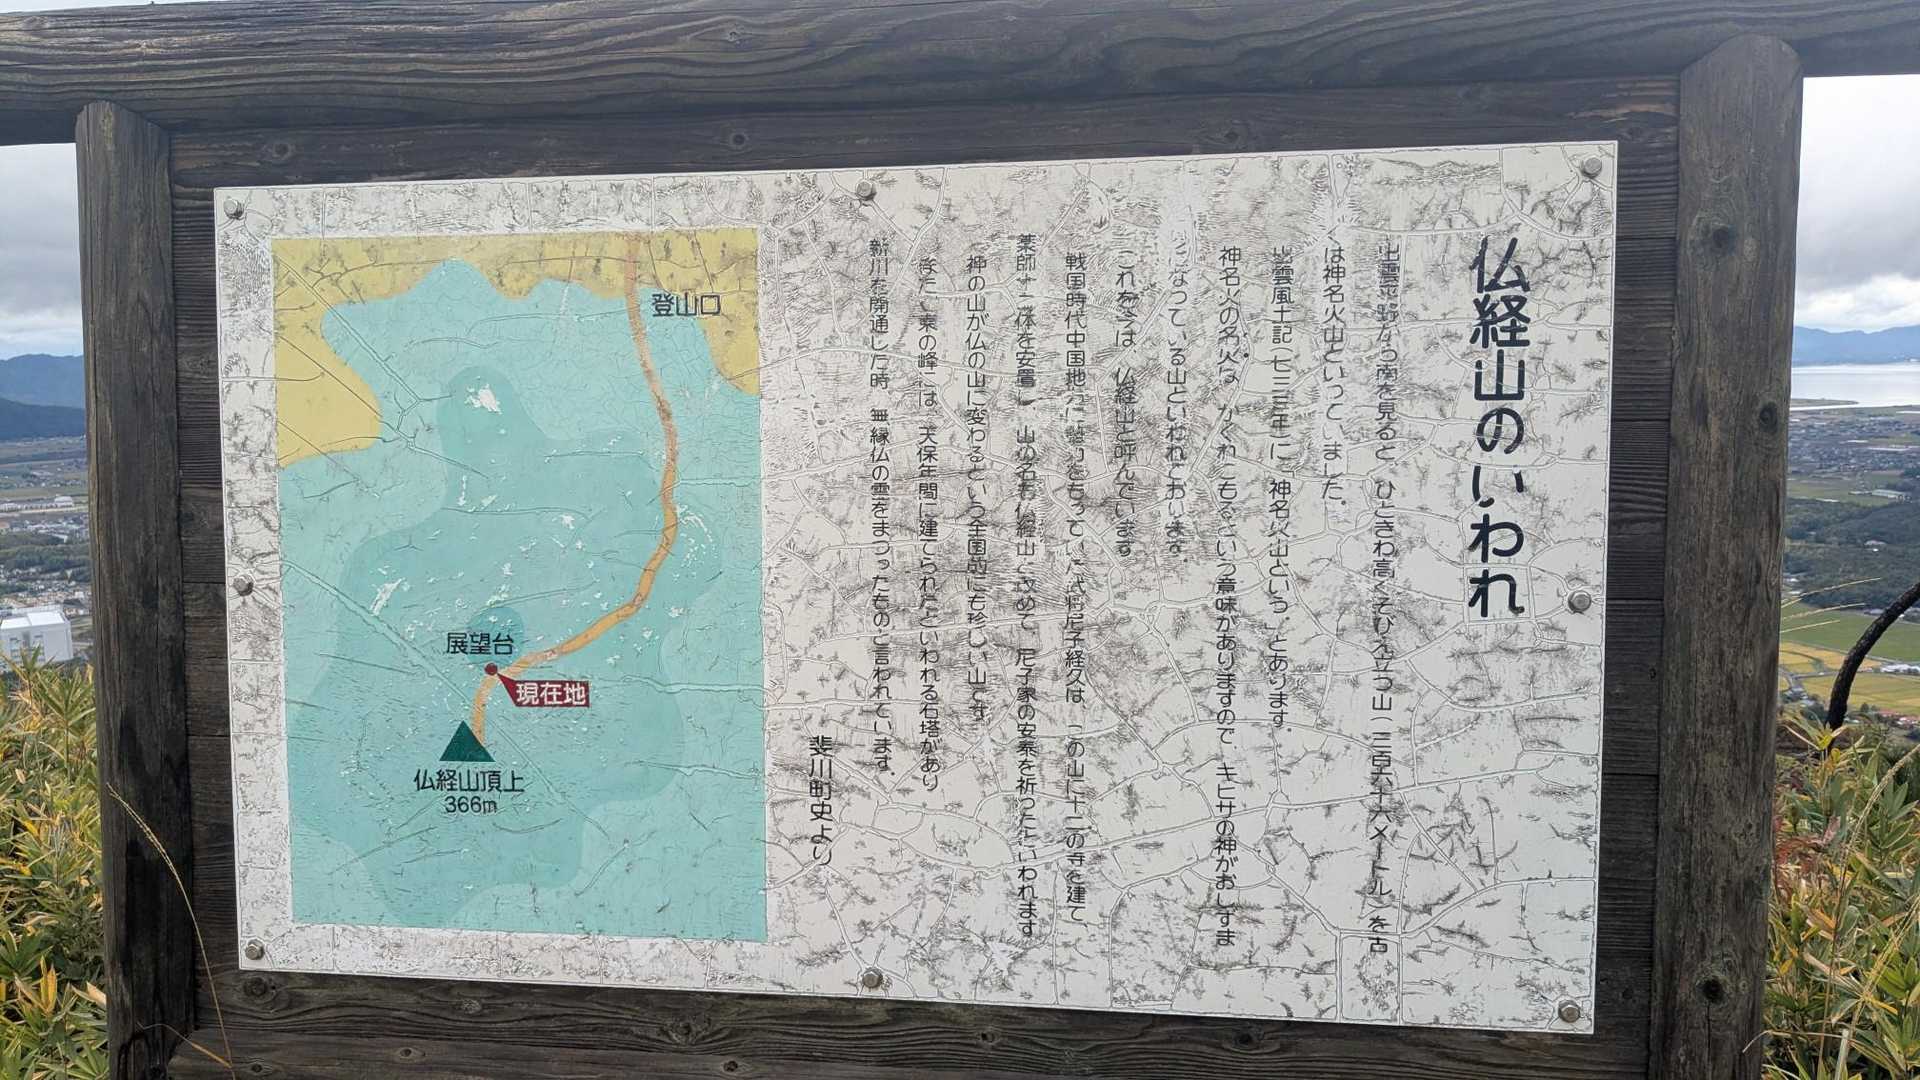 仏経山のいわれ
出雲平野から南を見ると、ひときわ高くそびえ立つ山(三百六十六メートル)を古
くは神名火山といっていました。
出雲風土記(七三三年)に「神名火山という。」とあります。
神名火の名火は、かくれこもるという意味がありますので、キヒサの神がおしずま
りになっている山といわれております。
これを今は、仏経山と呼んでいます。
戦国時代中国地方に勢力をもっていた武将尼子経久は、この山に十二の寺を建て、
薬師十二体を安置し、山の名も仏経山と改めて、尼子家の安泰を祈ったといわれます
神の山が仏の山に変わるという全国的にも珍しい山です。
また、東の峰には、天保年間に建てられたといわれる石塔があり
新川を開通した時、無縁仏の霊をまつったものと言われています。
斐川町史より
登山口
展望台
現在地
仏経山頂上
366m